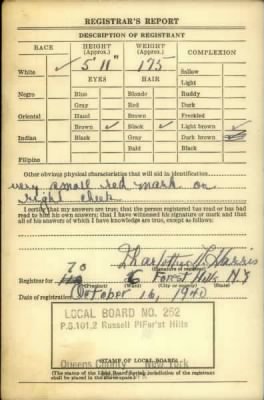 REGISTRAR'S REPORT
DESCRIPTION OF REGISTRANT
RACE HEIGHT (Approx.) WEIGHT (Approx.) COMPLEXION
White ✓ 5' 11" 175 Sallow
EYES HAIR Light
Negro Blue Blonde Ruddy
Gray Red Dark
Oriental Hazel Brown Freckled
Brown ✓ Black ✓ Light brown ✓
Indian Black Gray Dark brown
Bald Black
Filipino
Other obvious physical characteristics that will aid in identification
very small red mark on
right cheek
I certify that my answers are true; that the person registered has read or has had
read to him his own answers; that I have witnessed his signature or mark and that
all of his answers of which I have knowledge are true, except as follows:
Harris
(Signature of registrar)
Registrar for 70 6 Forest Hills N.Y
(Precinct) (Ward) (City or county) (State)
Date of registration October 16, 1940
LOCAL BOARD NO. 262
P.S.101,2 Russell Pl Forest Hills
Queens County New York
(STAMP OF LOCAL BOARD)
(The stamp of the Local Board having jurisdiction of the registrant
shall be placed in the above space.)